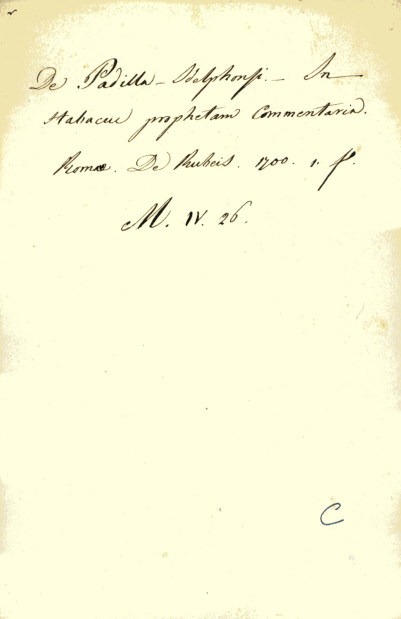 De Padilla - Idelphonsi. - In
Habacuc prophetam Commentaria.
Romæ. De Rubeis. 1700. 1. f.
M. IV. 26.
C